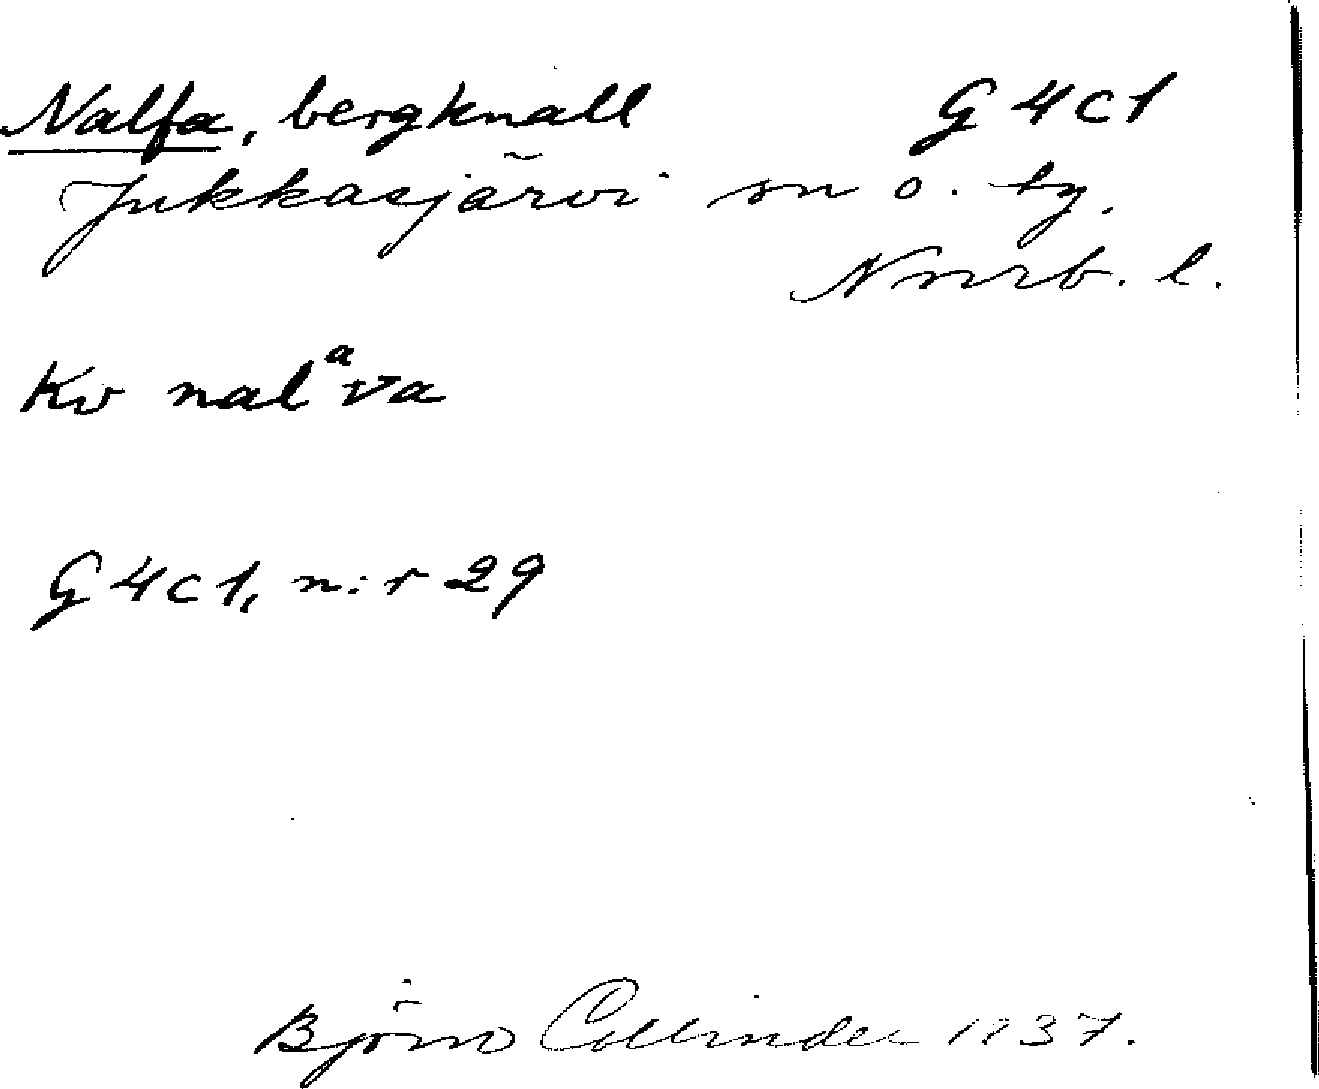 Nalfa, bergknall G4c1
Jukkasjärvi sn o. tg.
Norrb. l.
Kv nalᵃva
G4c1, n:r 29
Björn Collinder 1937.